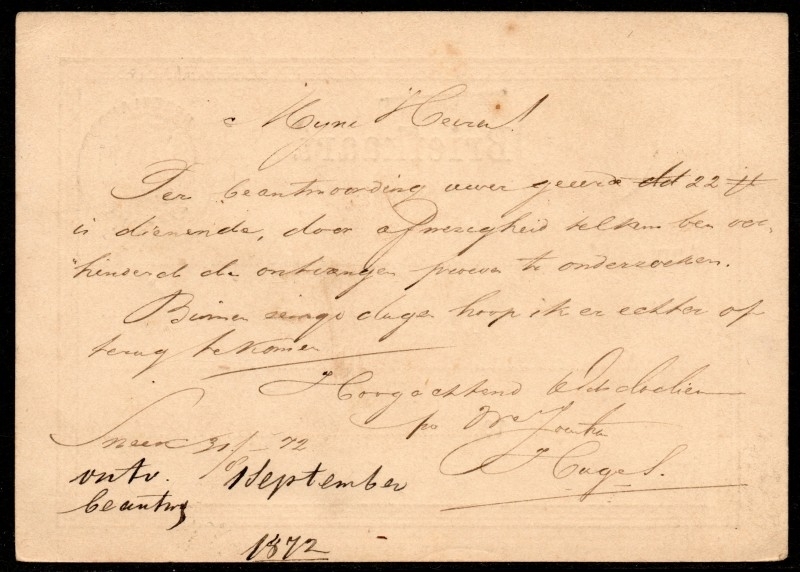 Mijne Heeren!
Ter beantwoording uwer geeerde dd 22 jl
is dienende, door afwezigheid telkens ben ver-
hinderd de ontvangen proeven te onderzoeken.
Binnen eenige dagen hoop ik er echter op
terug te komen
Hoogachtend
po
Sneek 31/8 - 72
ontv. 1 September
beantw
1872